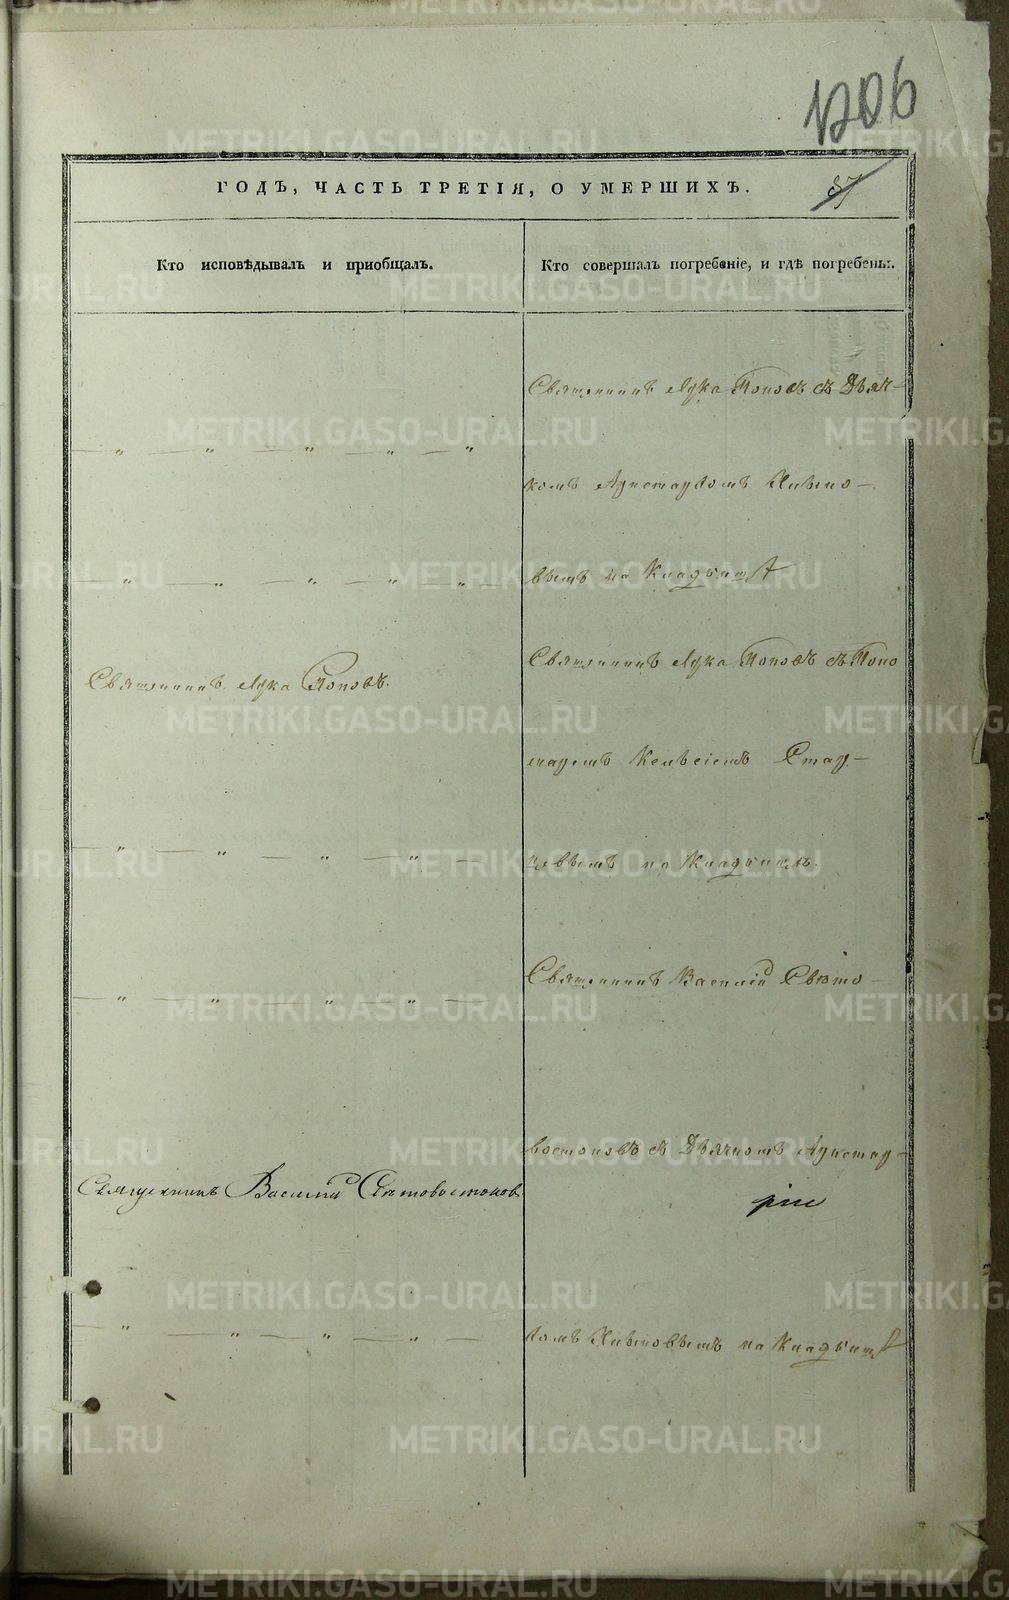 1206
ГОДЪ, ЧАСТЬ ТРЕТІЯ, О УМЕРШИХЪ.
87
Кто исповѣдывалъ и приобщалъ.
Кто совершалъ погребеніе, и гдѣ погребены.
Священникъ Лука Поповъ съ Дьяч-
комъ Аристархомъ
вымъ на Кладбищѣ
Священникъ Лука Поповъ.
Священникъ Лука Поповъ съ Поно
маремъ
вымъ на Кладбищѣ.
Священникъ Василій Свято-
востоковъ съ Дьячкомъ Аристар-
Священникъ Василій Святовостоковъ
хомъ на Кладбищѣ
METRIKI.GASO-URAL.RU